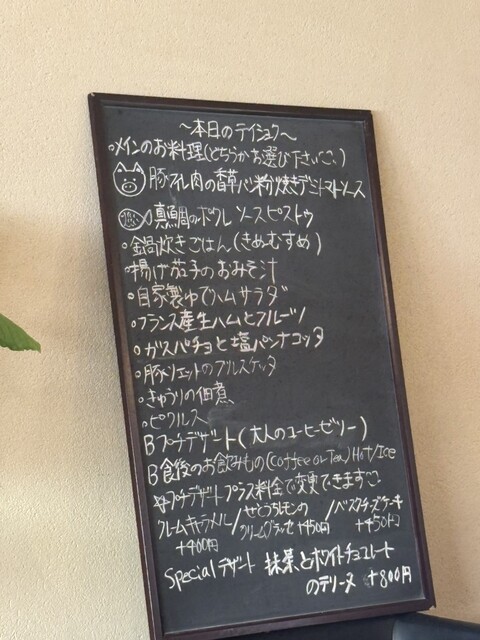 〜本日のテイショク〜
・メインのお料理(どちらかお選び下さい♡)
豚ヒレ肉の香草パン粉焼きデミトマトソース
真鯛のポワレ ソースピストゥ
・鍋炊きごはん(きぬむすめ)
・揚げ茄子のおみそ汁
・自家製ゆでハムサラダ
・フランス産生ハムとフルーツ
・ガスパチョと塩パンナコッタ
・豚リエットのブルスケッタ
・きゅうりの佃煮
・ピクルス
Bプチデザート(大人のコーヒーゼリー)
B食後のお飲みもの(Coffee or Tea) Hot/Ice
プチデザートプラス料金で変更できます♡
クレームキャラメル/せとうちレモンの/バスクチーズケーキ
クリームグラッセ+450円 +450円
+400円
Specialデザート 抹茶とホワイトチョコレート
のテリーヌ +800円